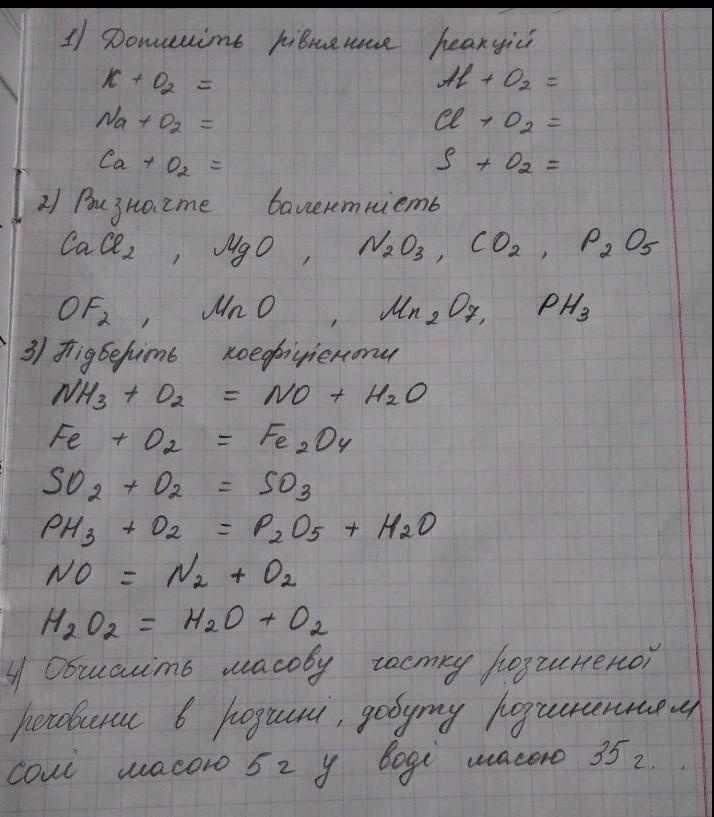 1) Допишіть рівняння реакцій
K + O₂ = Al + O₂ =
Na + O₂ = Cl + O₂ =
Ca + O₂ = S + O₂ =
2) Визначте валентність
CaCl₂ , MgO , N₂O₃ , CO₂ , P₂O₅
OF₂ , MnO , Mn₂O₇, PH₃
3) Підберіть коефіцієнти
NH₃ + O₂ = NO + H₂O
Fe + O₂ = Fe₂O₄
SO₂ + O₂ = SO₃
PH₃ + O₂ = P₂O₅ + H₂O
NO = N₂ + O₂
H₂O₂ = H₂O + O₂
4) Обчисліть масову частку розчиненої
речовини в розчині, добуту розчиненням
солі масою 5 г у воді масою 35 г.